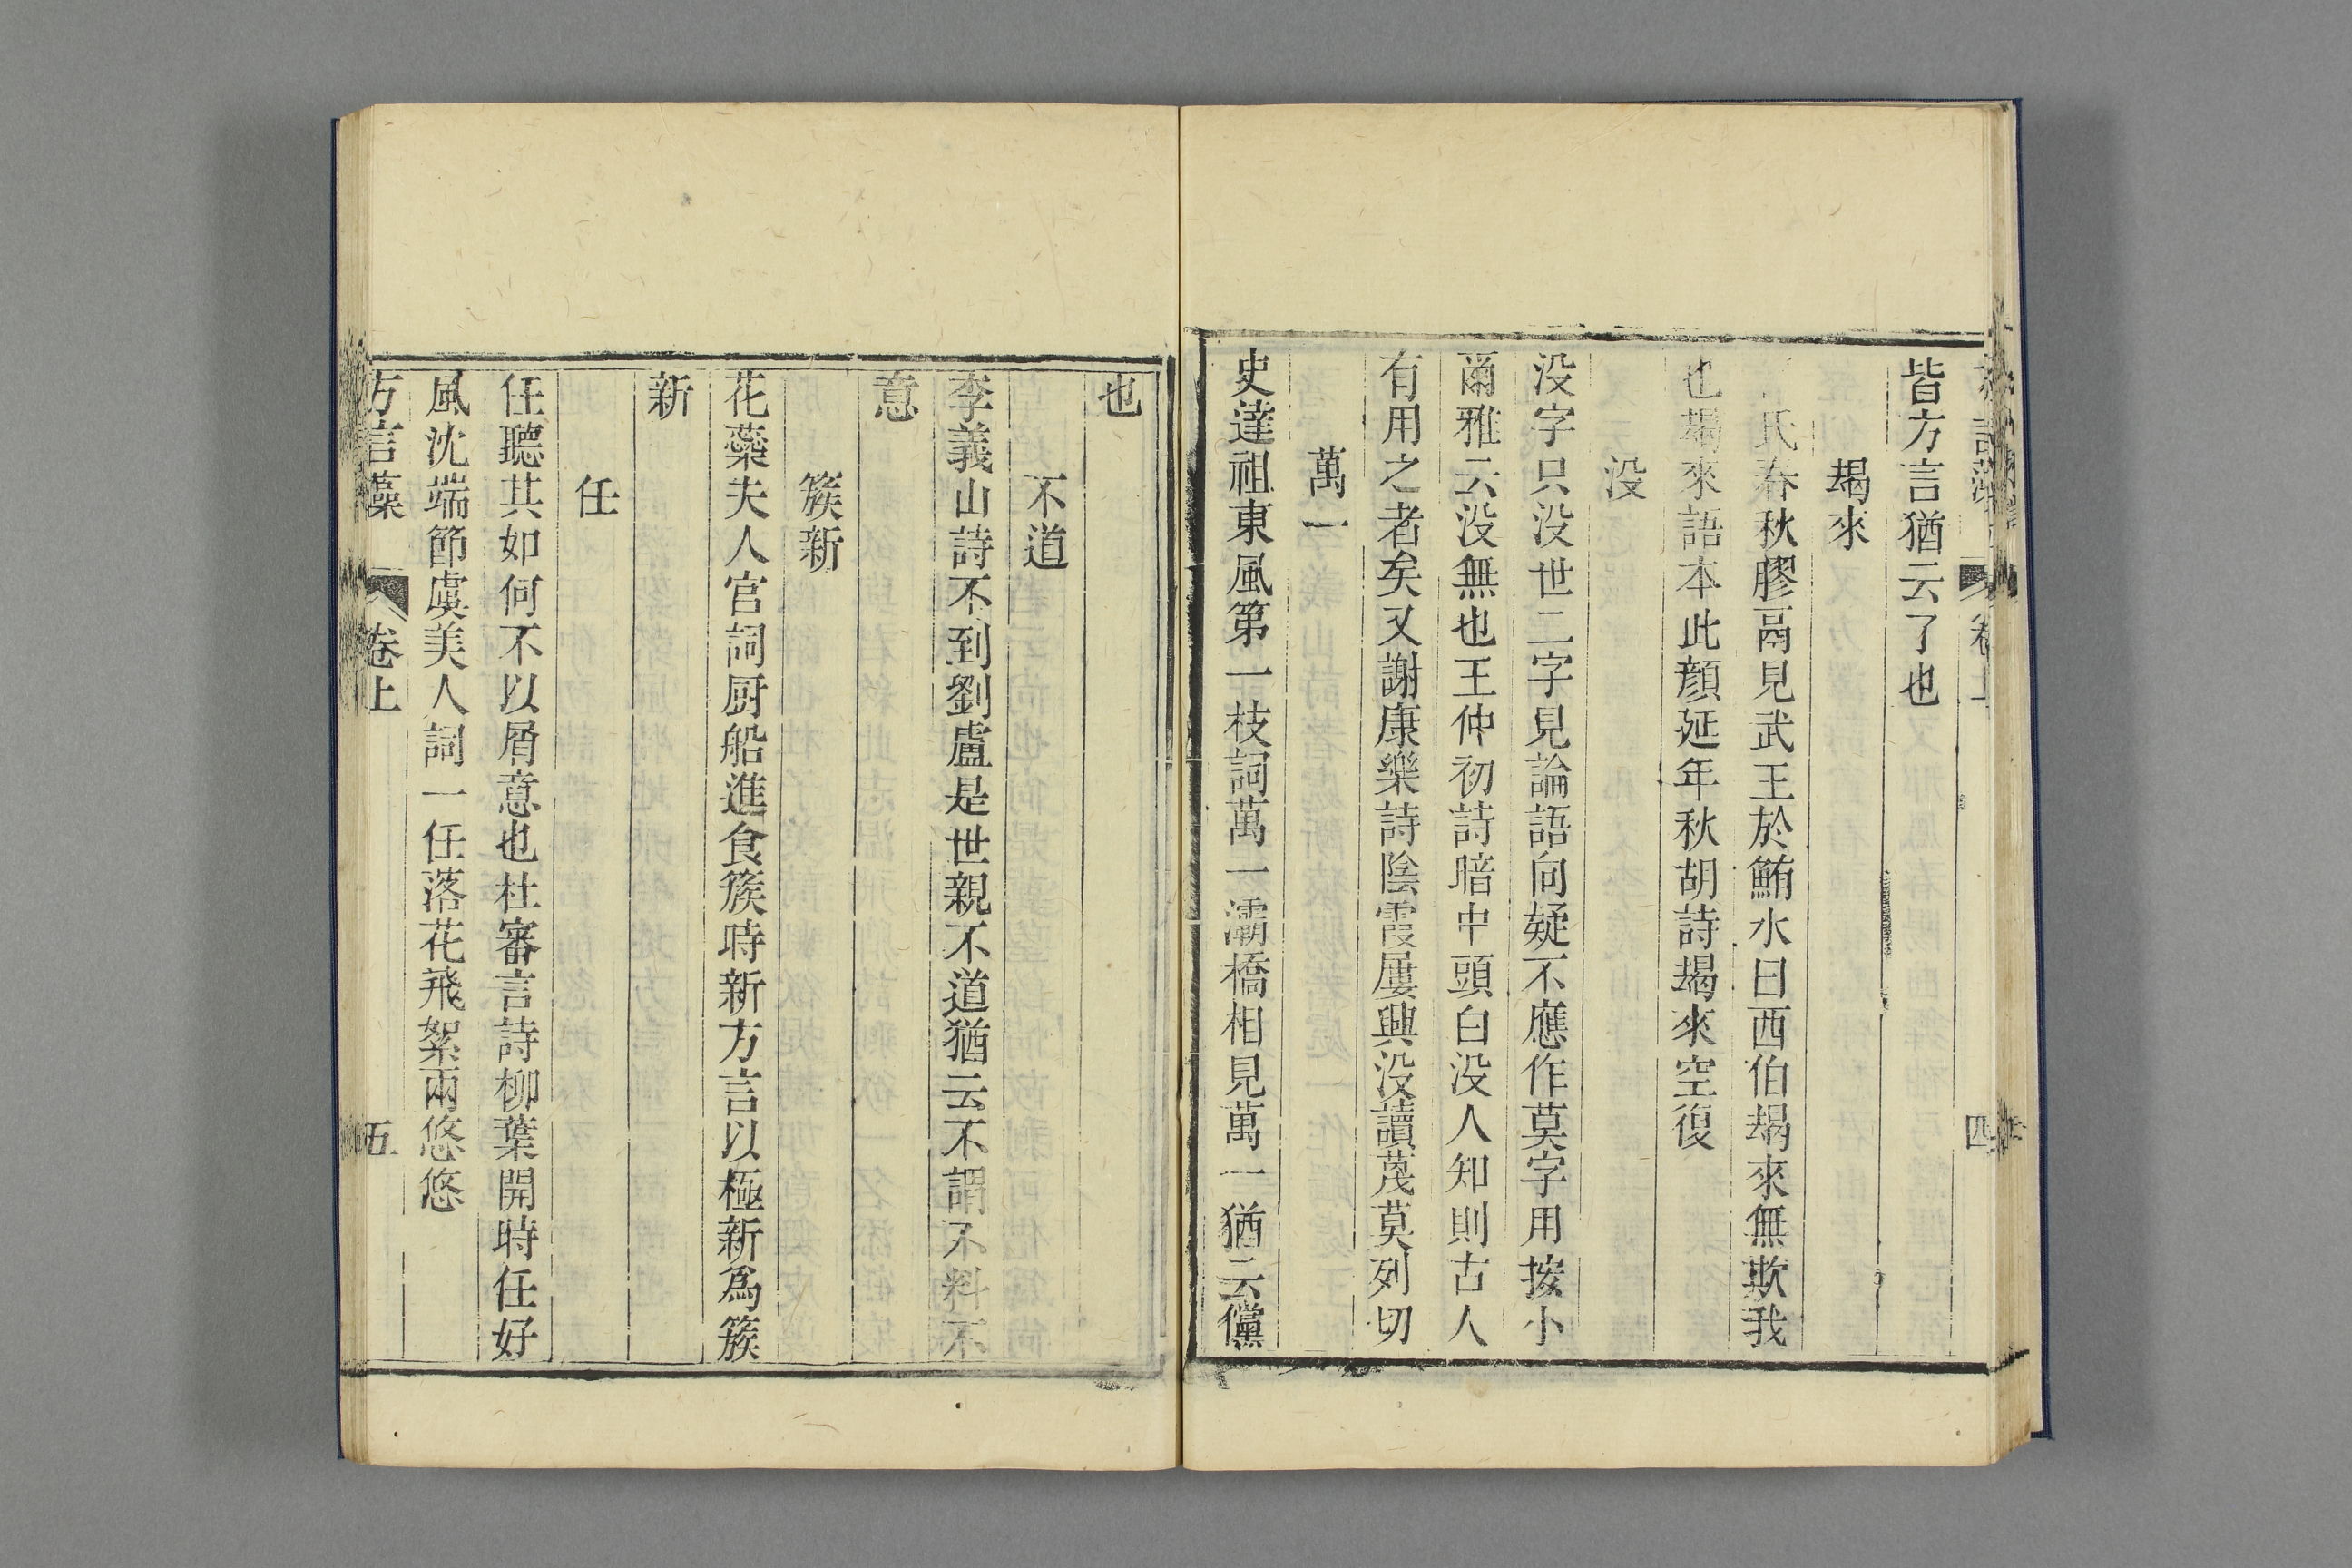 皆方言猶云了也
朅來
氏春秋膠鬲見武王於鮪水曰西伯朅來無欺我
也朅來語本此顔延年秋胡詩朅來空復
没
没字只没世二字見論語向疑不應作莫字用按小
爾雅云没無也王仲初詩暗中頭白没人知則古人
有用之者矣又謝康樂詩陰霞屢興没讀茂莫列切
萬一
史達祖東風第一枝詞萬一灞橋相見萬一猶云儻
卷上
四
也
不道
李義山詩不到劉盧是世親不道猶云不謂不料不
意
簇新
花蘂夫人宮詞厨船進食簇時新方言以極新爲簇
新
任
任聽其如何不以屑意也杜審言詩柳葉開時任好
風沈端節虞美人詞一任落花飛絮兩悠悠
方言藻
卷上
五